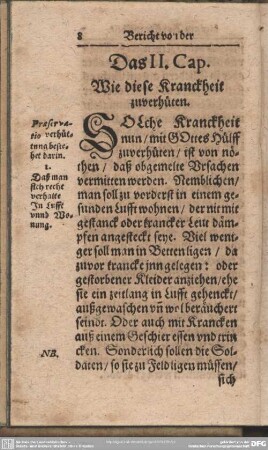 8 Bericht von der
Das II. Cap.
Wie diese Kranckheit
zuverhüten.
Præserva-
tio verhüt-
tung beste-
het darin.
1.
Daß man
sich recht
verhalte
In Lufft
vnnd Wo-
nung.
SOLche Kranckheit
nun / mit GOttes Hülff
zuverhüten / ist von nö-
then / daß obgemelte Vrsachen
vermitten werden. Nemblichen /
man soll zu vorderst in einem ge-
sunden Lufft wohnen / der nit mit
gestanck oder krancker Leut däm-
pfen angesteckt seye. Viel weni-
ger soll man in Betten ligen / da
zuvor krancke jnn gelegen: oder
gestorbener Kleider anziehen / ehe
sie ein zeitlang in Lufft gehenckt /
außgewaschen vñ wol beräuchert
seindt. Oder auch mit Krancken
auß einem Geschier essen vnd trin
cken. Sonderlich sollen die Sol-
daten / so sie zu Feld ligen müssen /
NB.
sich